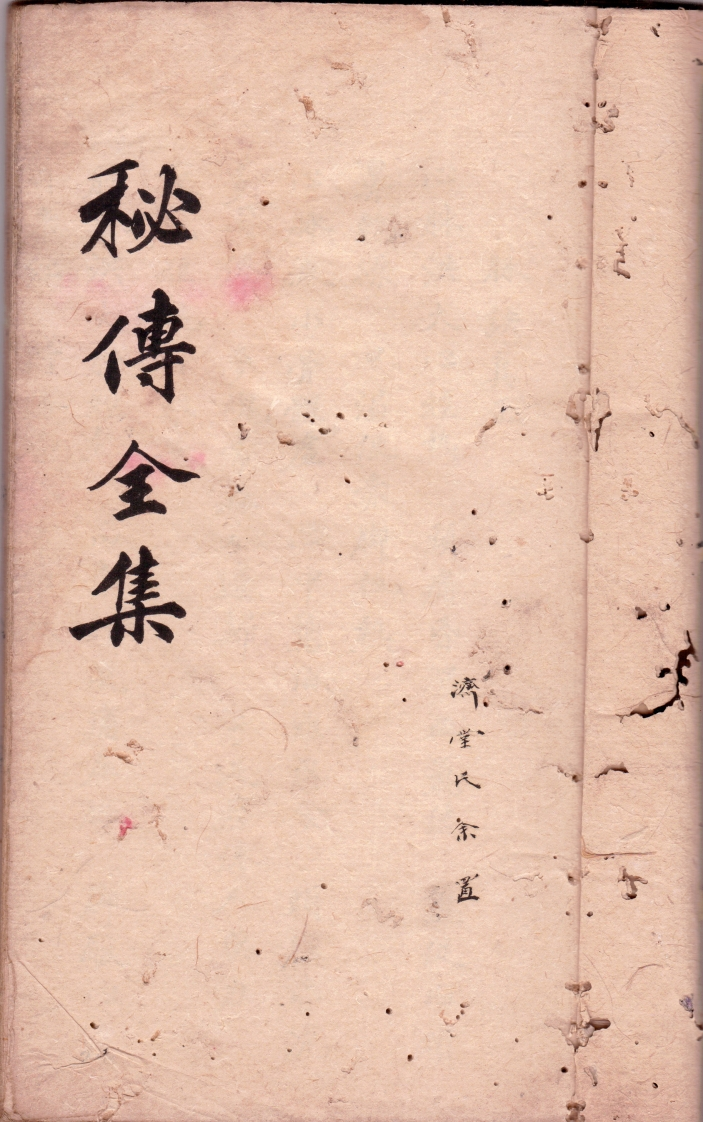 濟堂氏余置
秘傳全集